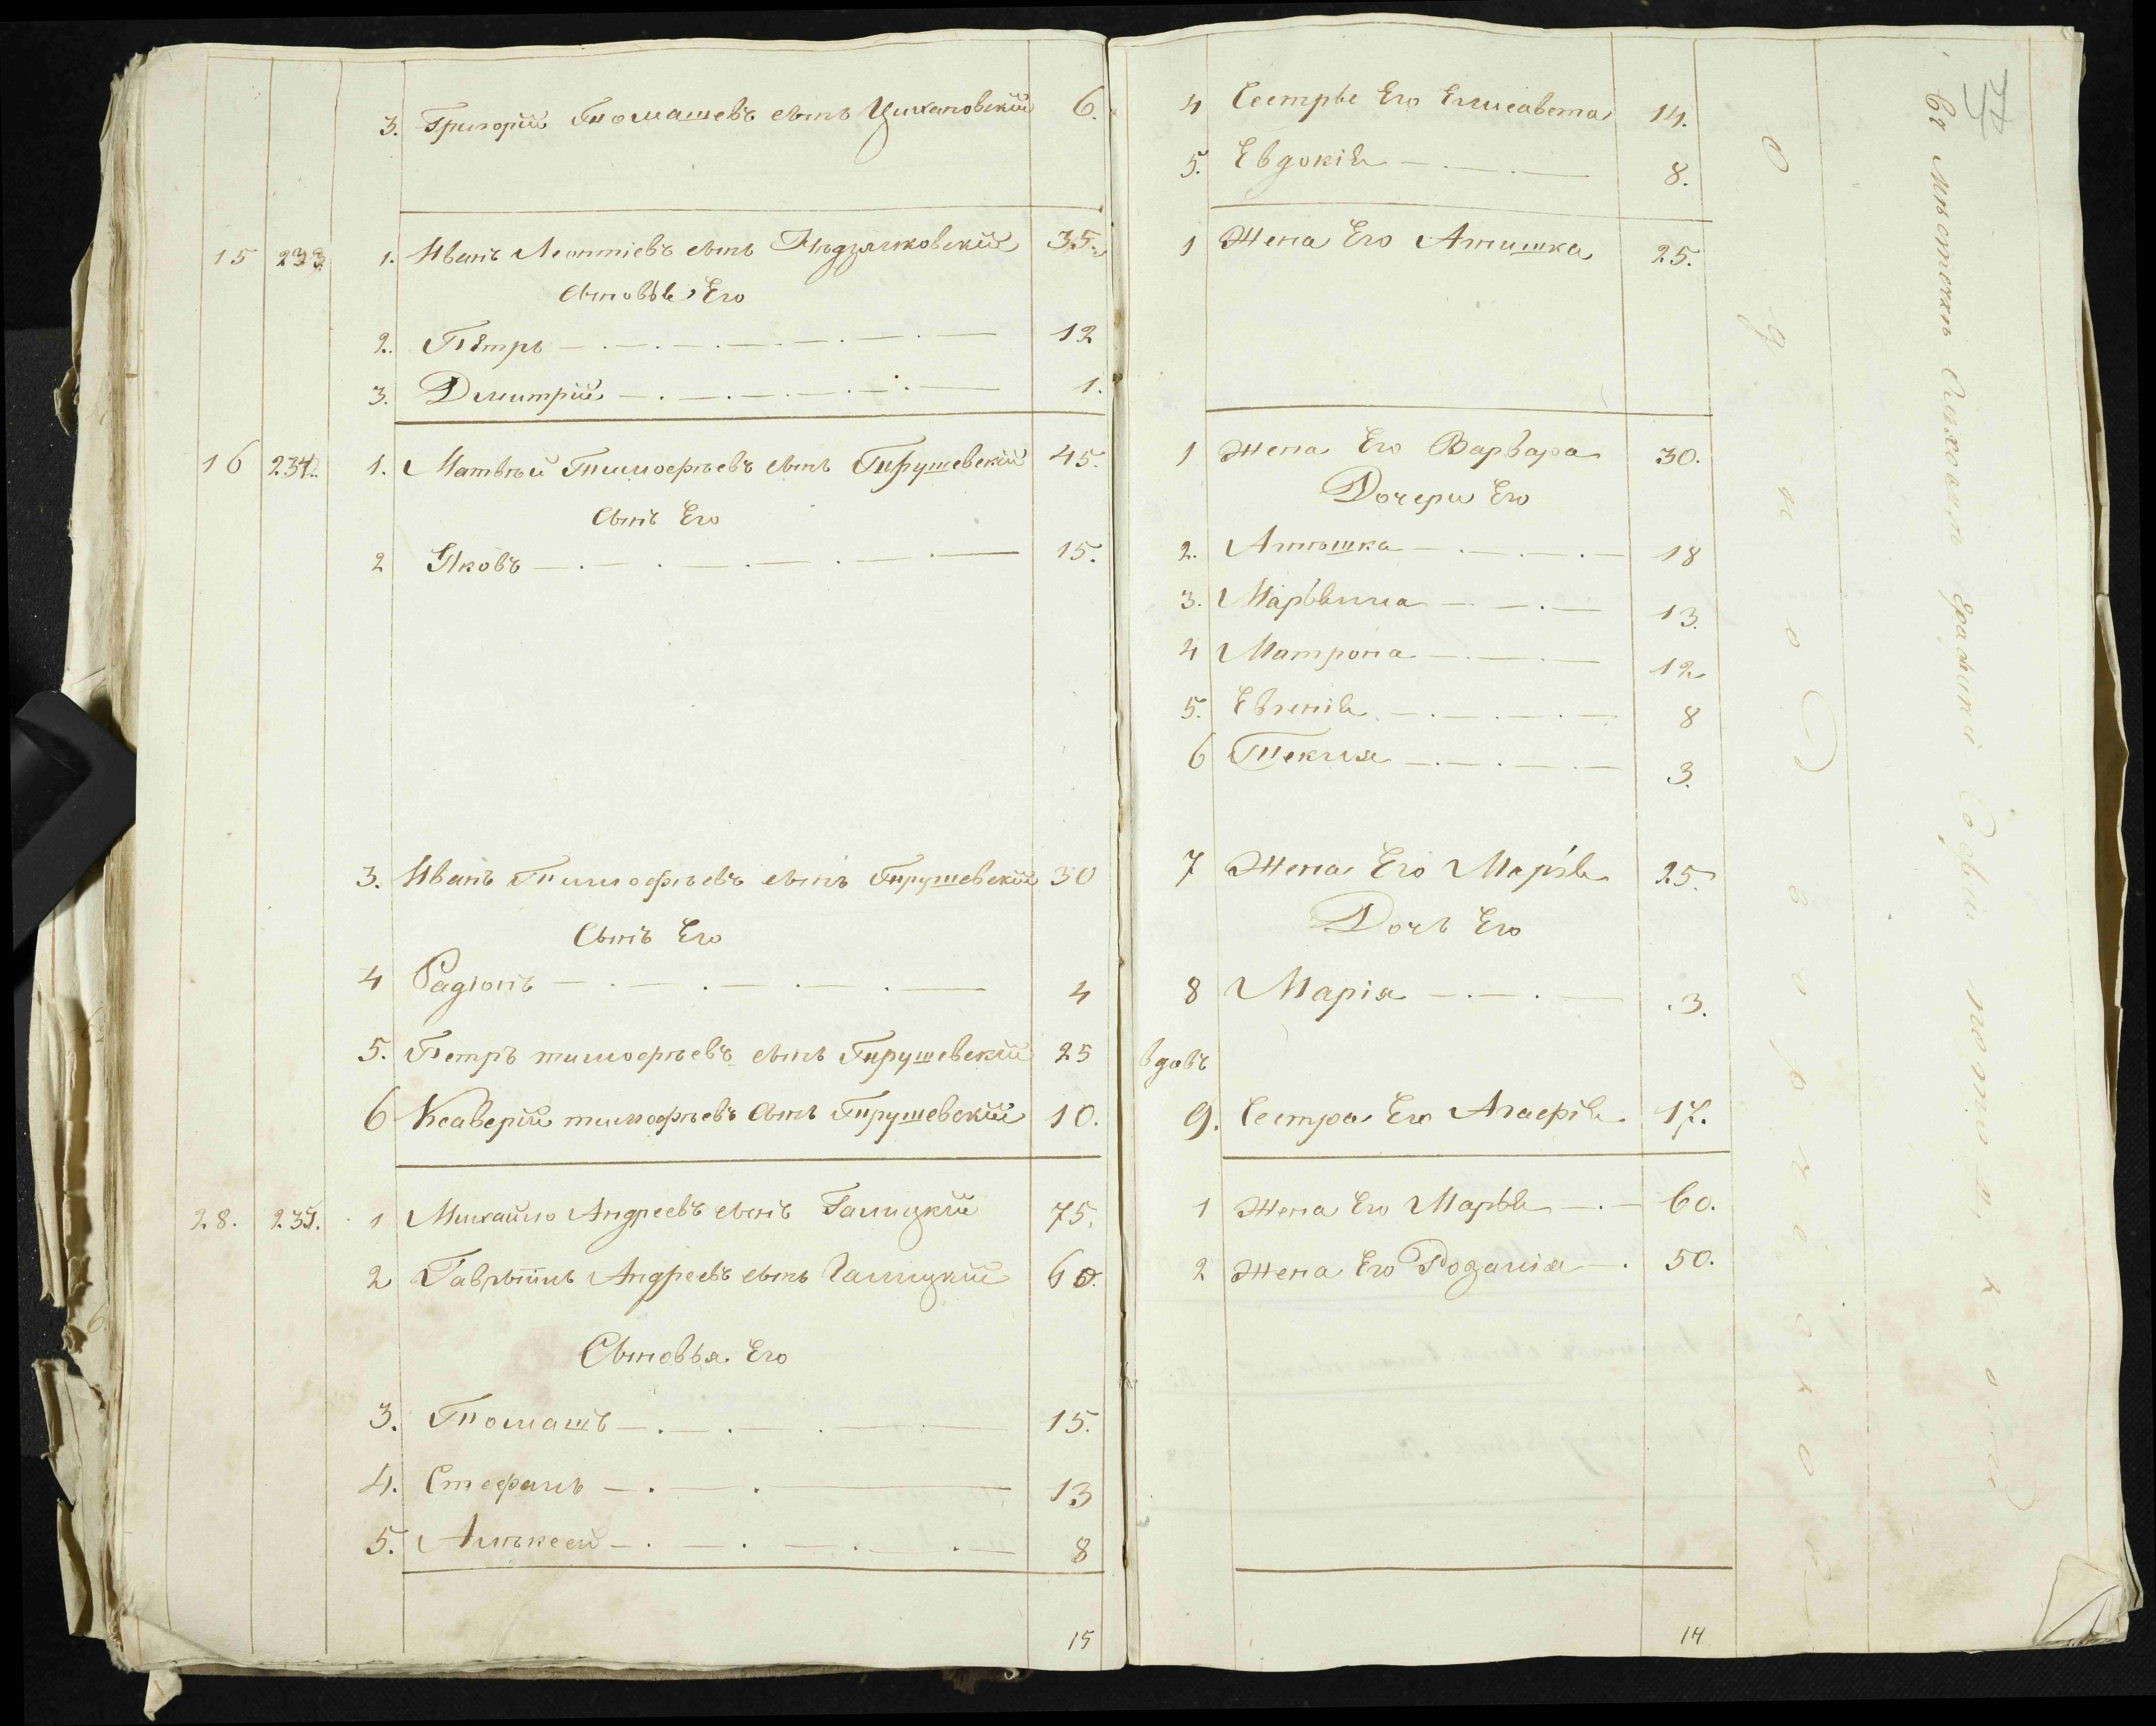 3. Григорій Томашевъ сынъ Цихановскій 6.
15 233 1. Иванъ Леонтіевъ сынъ 35.
Сыновья Его
2. Петръ 12
3. Дмитрій 1.
16 234. 1. Матвѣй Тимофѣевъ сынъ Грушевскій 45.
Сынъ Его
2 Яковъ 15.
3. Иванъ Тимофѣевъ сынъ Грушевскій 30
Сынъ Его
4 Радіонъ 4
5. Петръ тимофѣевъ сынъ Грушевскій 25
6 Ксаверій тимофѣевъ Сынъ Грушевскій 10.
28. 235. 1 Михайло Андреевъ сынъ Галицкій 75.
2 Андреевъ сынъ Галицкій 60.
Сыновья Его
3. Томашъ 15.
4. Стефанъ 13
5. Алѣксей 8
15
4 Сестры Его Елисавета 14.
5. Евдокія 8.
1 Жена Его Аннушка 25.
1 Жена Его Варвара 30.
Дочери Его
2. Аннюшка 18
3. Марьянна 13.
4 Матрона 12
5. Евгенія 8
6 Текля 3.
7 Жена Его Марья 25.
Дочь Его
8 Марія 3.
вдовъ
9. Сестра Его Агафія 17.
1 Жена Его Марья 60.
2 Жена Его Розалія 50.
14
однодворческаго
Въ мѣстечкѣ Графини Софіи